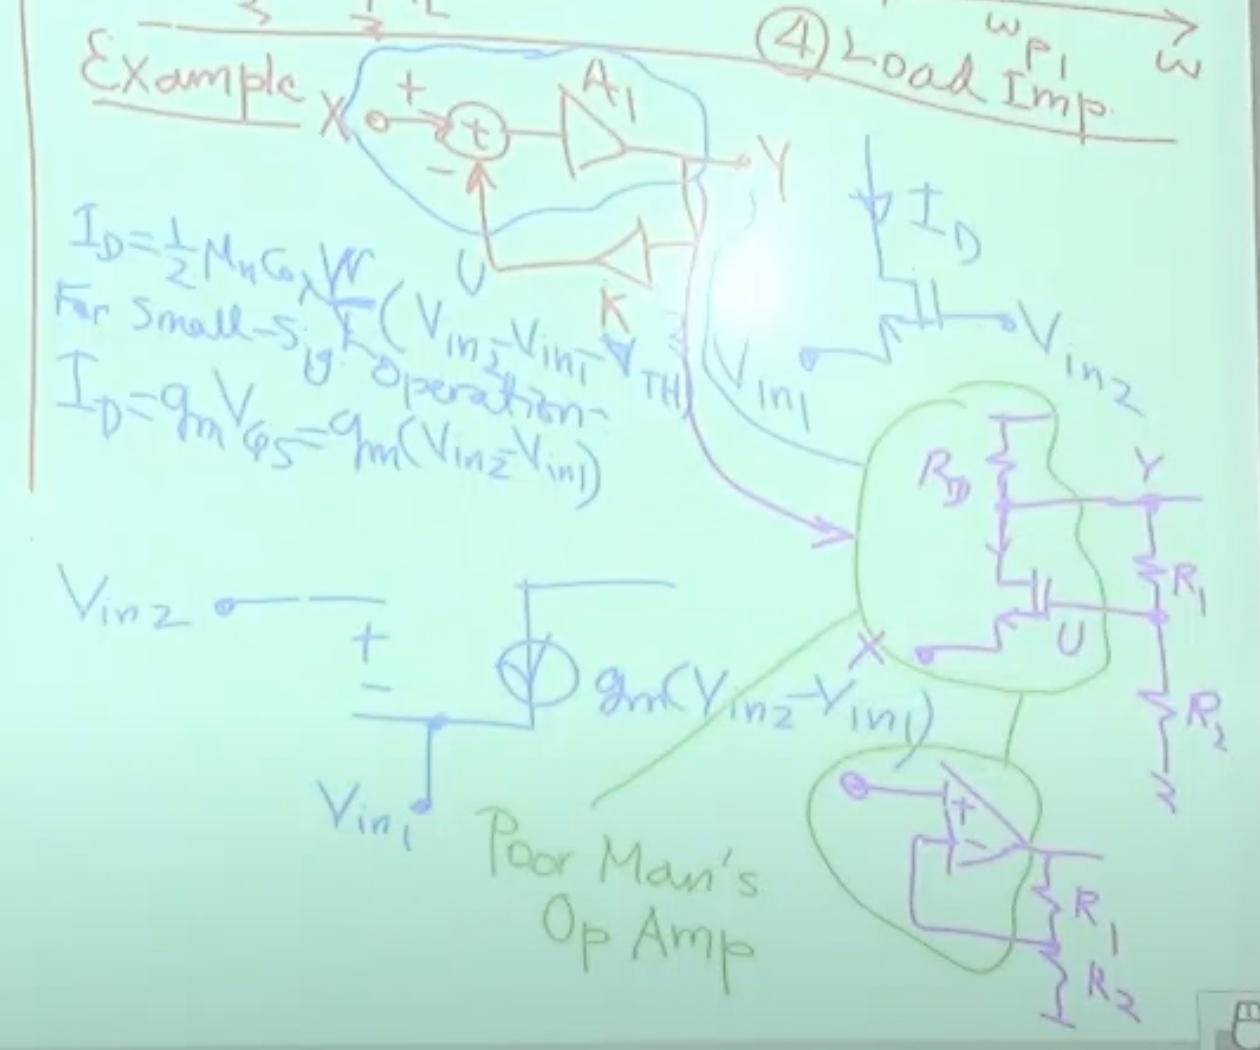 ωP1
ω
④ Load Imp.
Example
X
+
+
−
A1
Y
U
K
ID = 1/2 μn Cox W/L (Vin2 − Vin1 − VTH)
For Small-Sig. Operation
ID = gm VGS = gm(Vin2 − Vin1)
ID
Vin1
Vin2
RD
Y
R1
X
U
R2
Vin2
+
−
gm(Vin2 − Vin1)
Vin1
Poor Man's
Op Amp
+
−
R1
R2